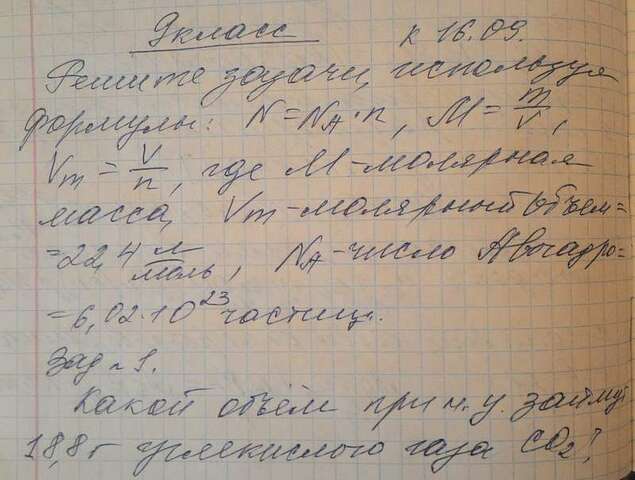 9 класс к 16.09.
Решите задачи, используя
формулы: N=N_A·n, M=m/ν,
V_m=V/n, где M-молярная
масса, V_m-молярный объем=
=22,4 л/моль, N_A-число Авогадро=
=6,02·10²³ частиц.
Зад ~ 1.
Какой объём при н.у. займут
18,8г углекислого газа CO₂?